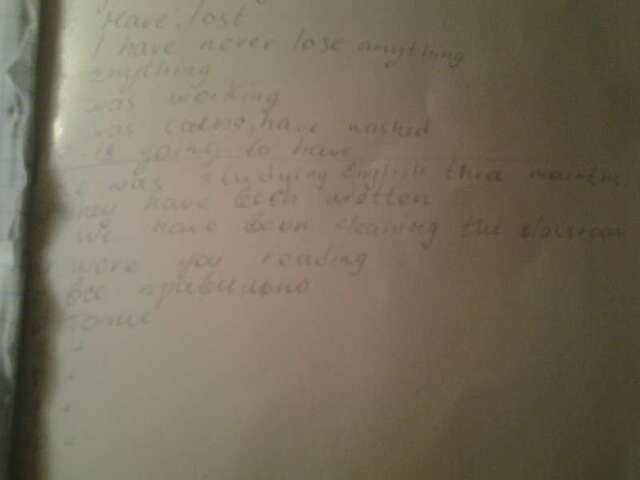 Have lost
I have never lose anything
anything
was working
was have washed
is going to have
I was studying english
they have been written
We have been cleaning the classroom
were you reading
все правильно
тоже